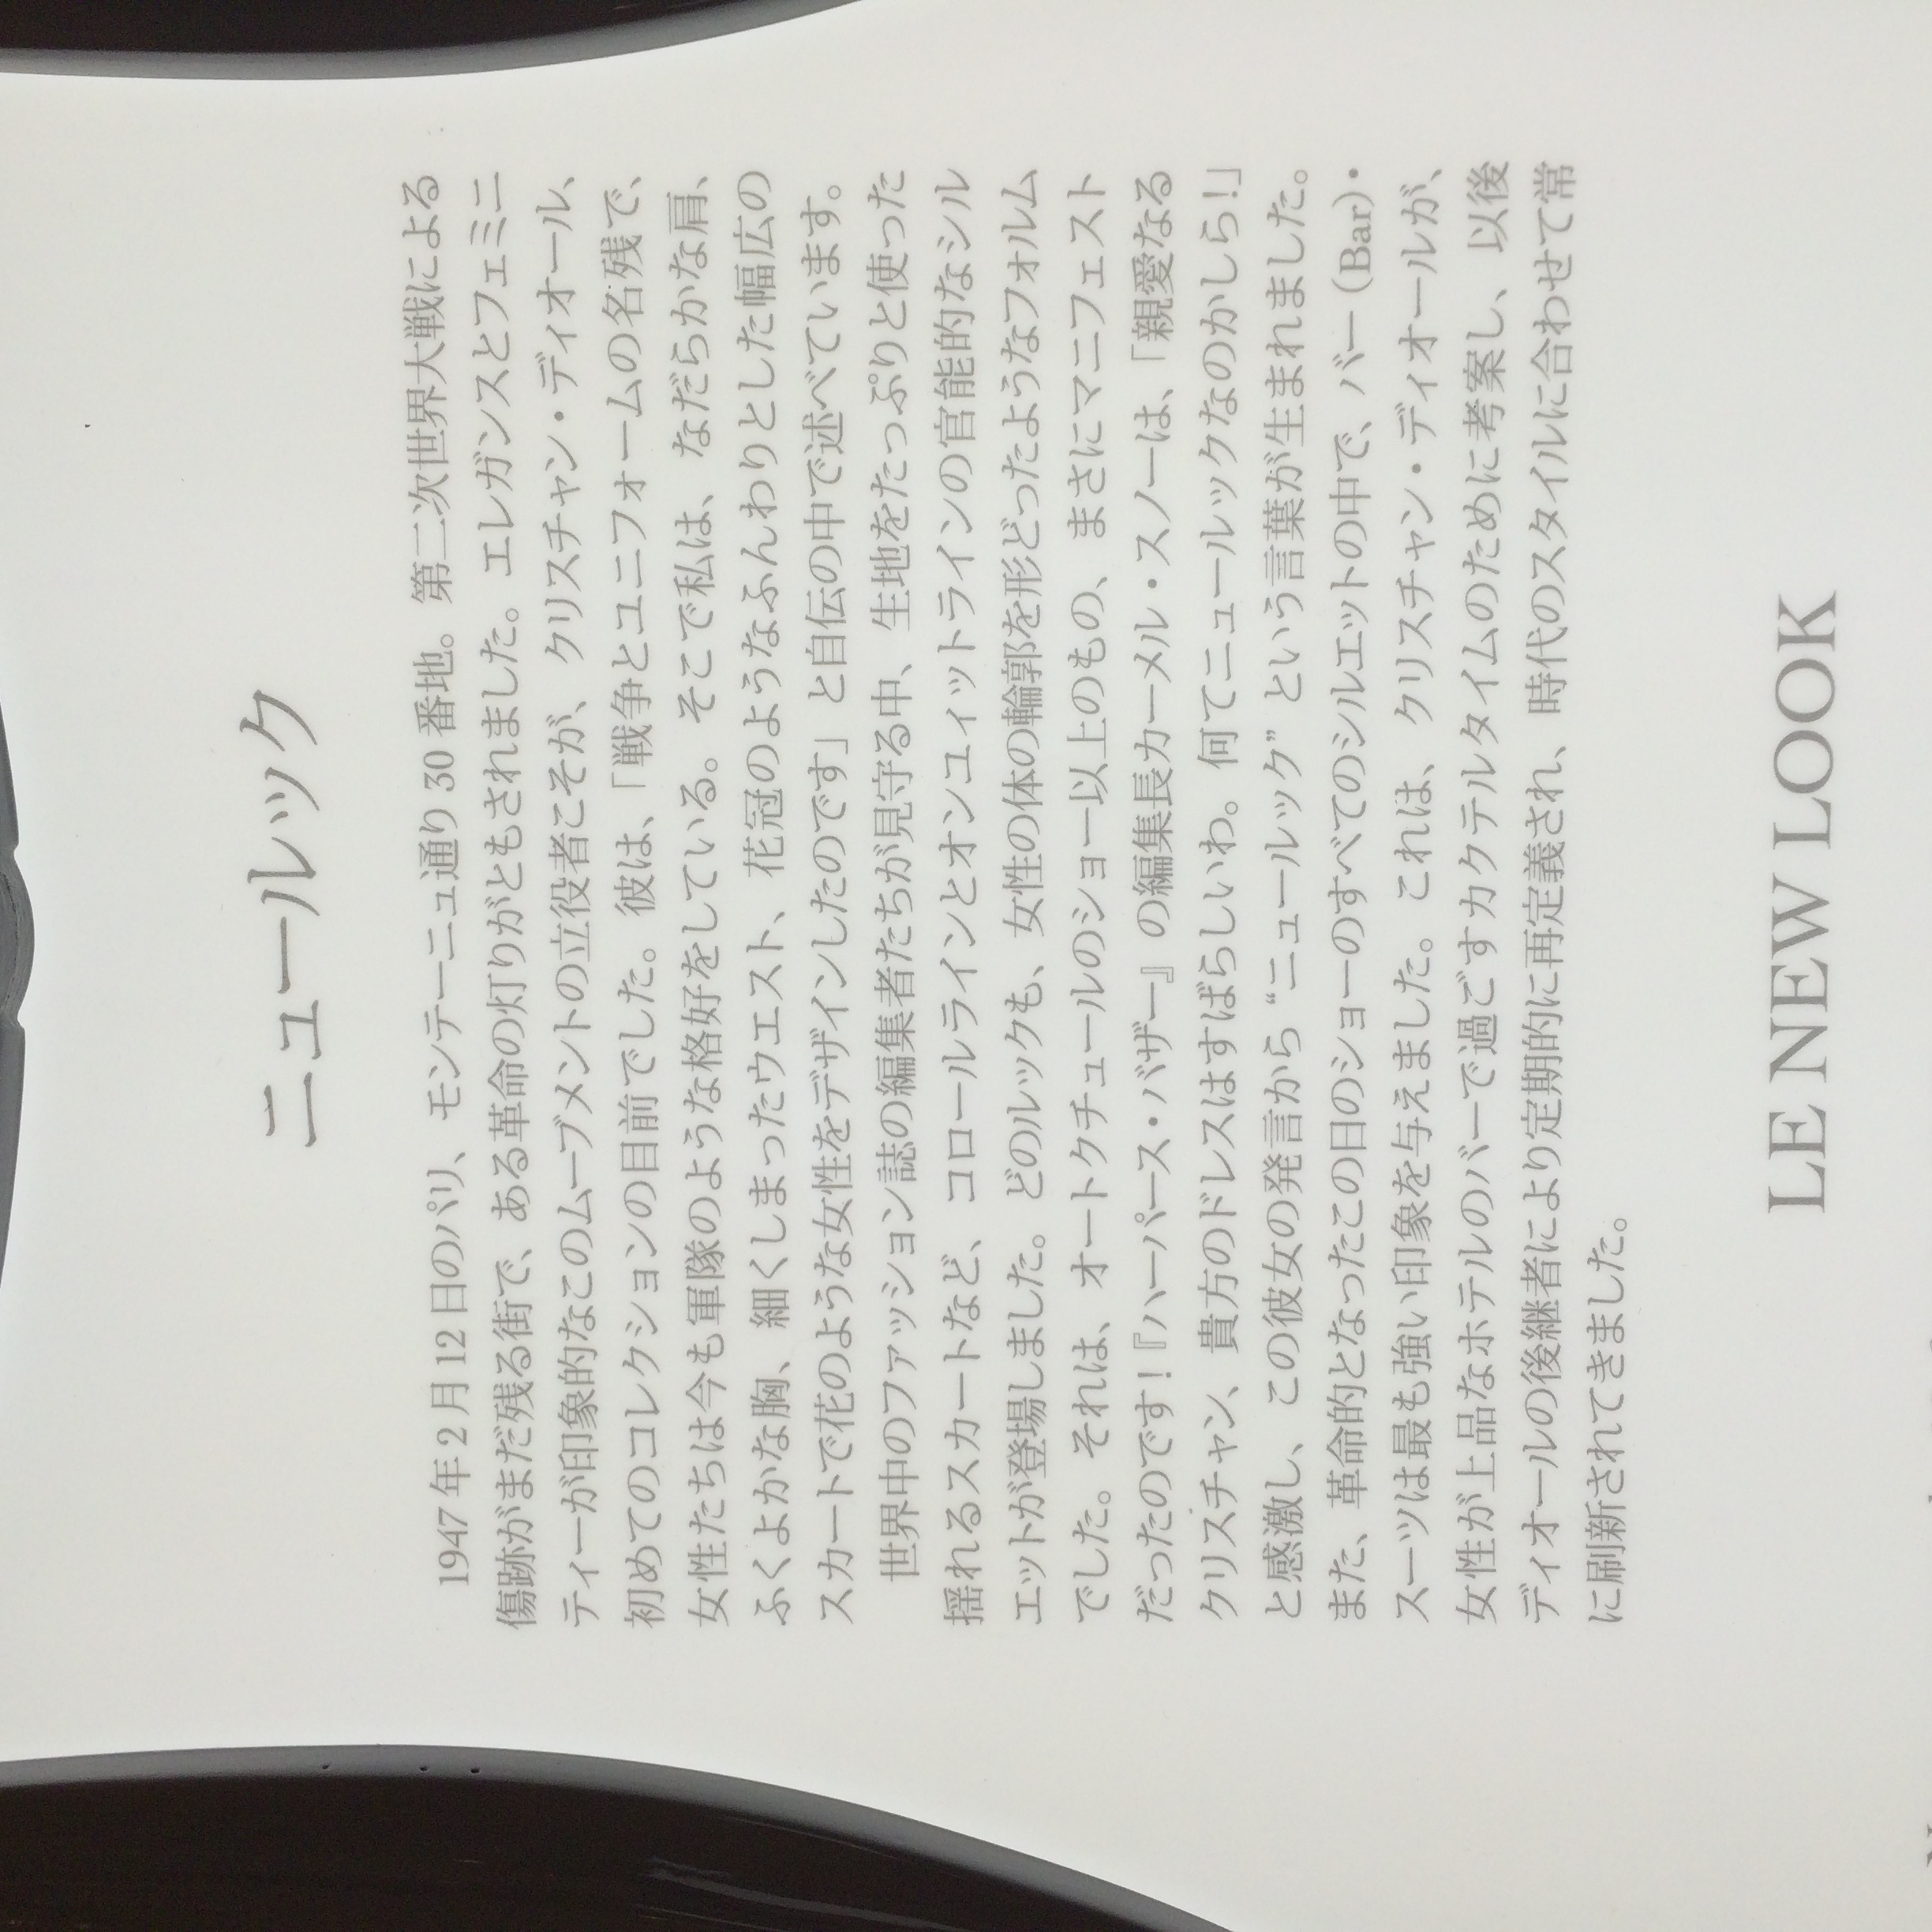 ニュールック
1947年2月12日のパリ、モンテーニュ通り30番地。第二次世界大戦による
傷跡がまだ残る街で、ある革命の灯りがともされました。エレガンスとフェミニ
ティーが印象的なこのムーブメントの立役者こそが、クリスチャン・ディオール、
初めてのコレクションの目前でした。彼は、「戦争とユニフォームの名残で、
女性たちは今も軍隊のような格好をしている。そこで私は、なだらかな肩、
ふくよかな胸、細くしまったウエスト、花冠のようなふんわりとした幅広の
スカートで花のような女性をデザインしたのです」と自伝の中で述べています。
世界中のファッション誌の編集者たちが見守る中、生地をたっぷりと使った
揺れるスカートなど、コロールラインとオンユィットラインの官能的なシル
エットが登場しました。どのルックも、女性の体の輪郭を形どったようなフォルム
でした。それは、オートクチュールのショー以上のもの、まさにマニフェスト
だったのです！『ハーパース・バザー』の編集長カーメル・スノーは、「親愛なる
クリスチャン、貴方のドレスはすばらしいわ。何てニュールックなのかしら！」
と感激し、この彼女の発言から“ニュールック”という言葉が生まれました。
また、革命的となったこの日のショーのすべてのシルエットの中で、バー（Bar）・
スーツは最も強い印象を与えました。これは、クリスチャン・ディオールが、
女性が上品なホテルのバーで過ごすカクテルタイムのために考案し、以後
ディオールの後継者により定期的に再定義され、時代のスタイルに合わせて常
に刷新されてきました。
LE NEW LOOK